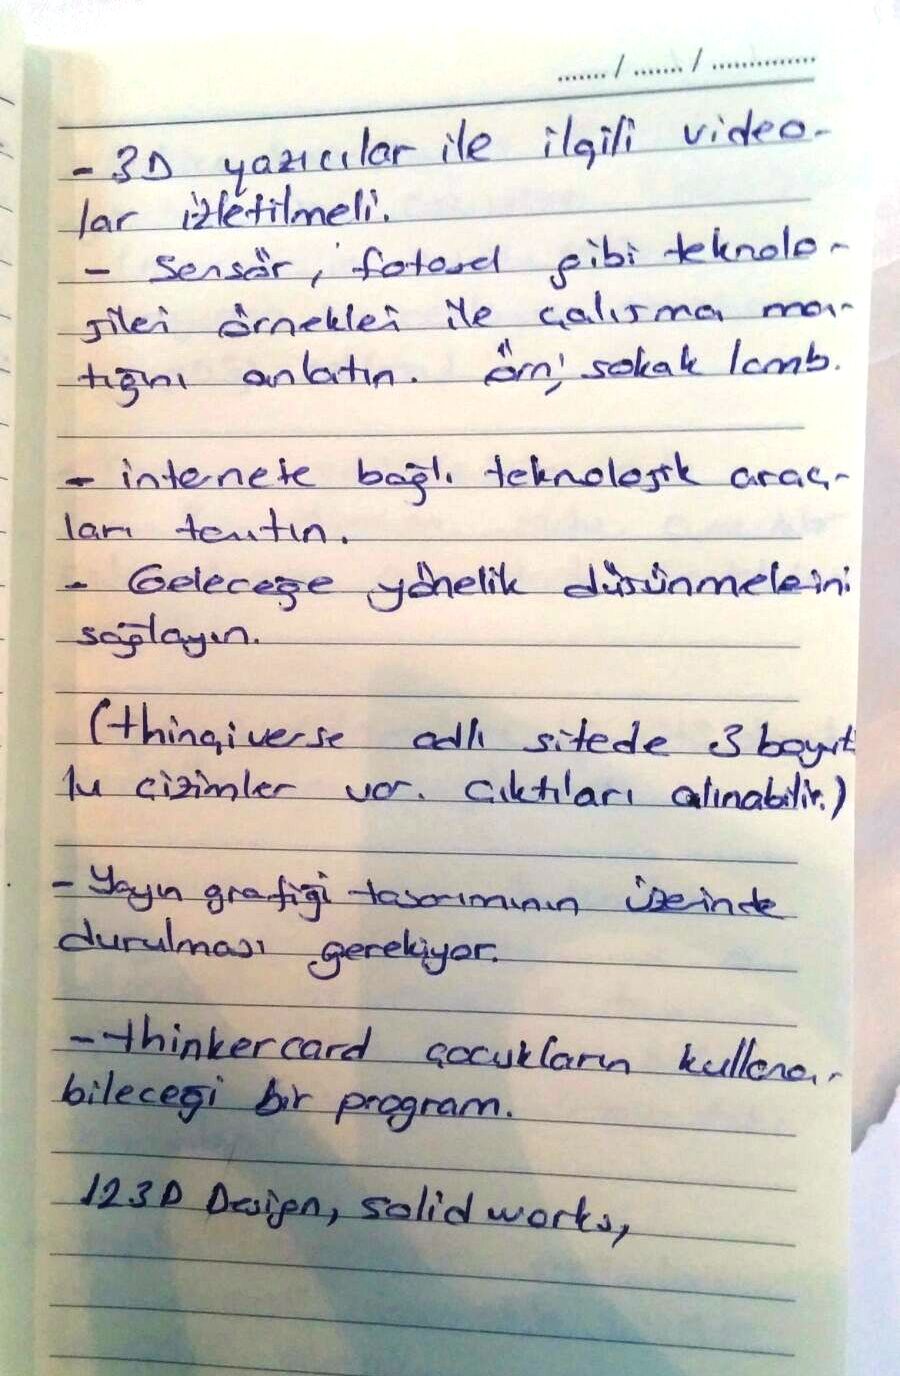 ...... / ...... / ............
- 3D yazıcılar ile ilgili video-
lar izletilmeli.
- Sensör, fotosel gibi teknolo-
jileri örnekleri ile çalışma man-
tığını anlatın. Örn; sokak lamb.
- internete bağlı teknolojik araç-
ları tanıtın.
- Geleceğe yönelik düşünmelerini
sağlayın.
(thingiverse adlı sitede 3 boyut
lu çizimler var. Çıktıları alınabilir.)
- Yayın grafiği tasarımının üzerinde
durulması gerekiyor.
- thinkercard çocukların kullana-
bileceği bir program.
123D Design, solid works,